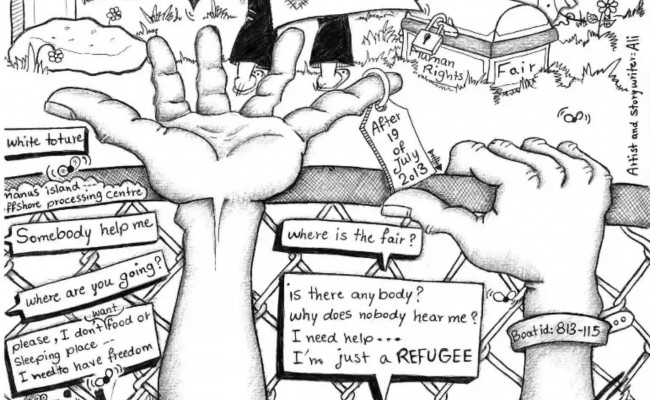 Human
Rights
Fair
Artist and Storywriter: Ali
After
19
of
July
2013
white toture
manus island ---
offshore processing centre
Somebody help me
where is the fair?
where are you going?
is there anybody?
why does nobody hear me?
I need help...
I'm just a REFUGEE
Boat id: 813-115
want
please, I don't food or
Sleeping place ---
I need to have freedom